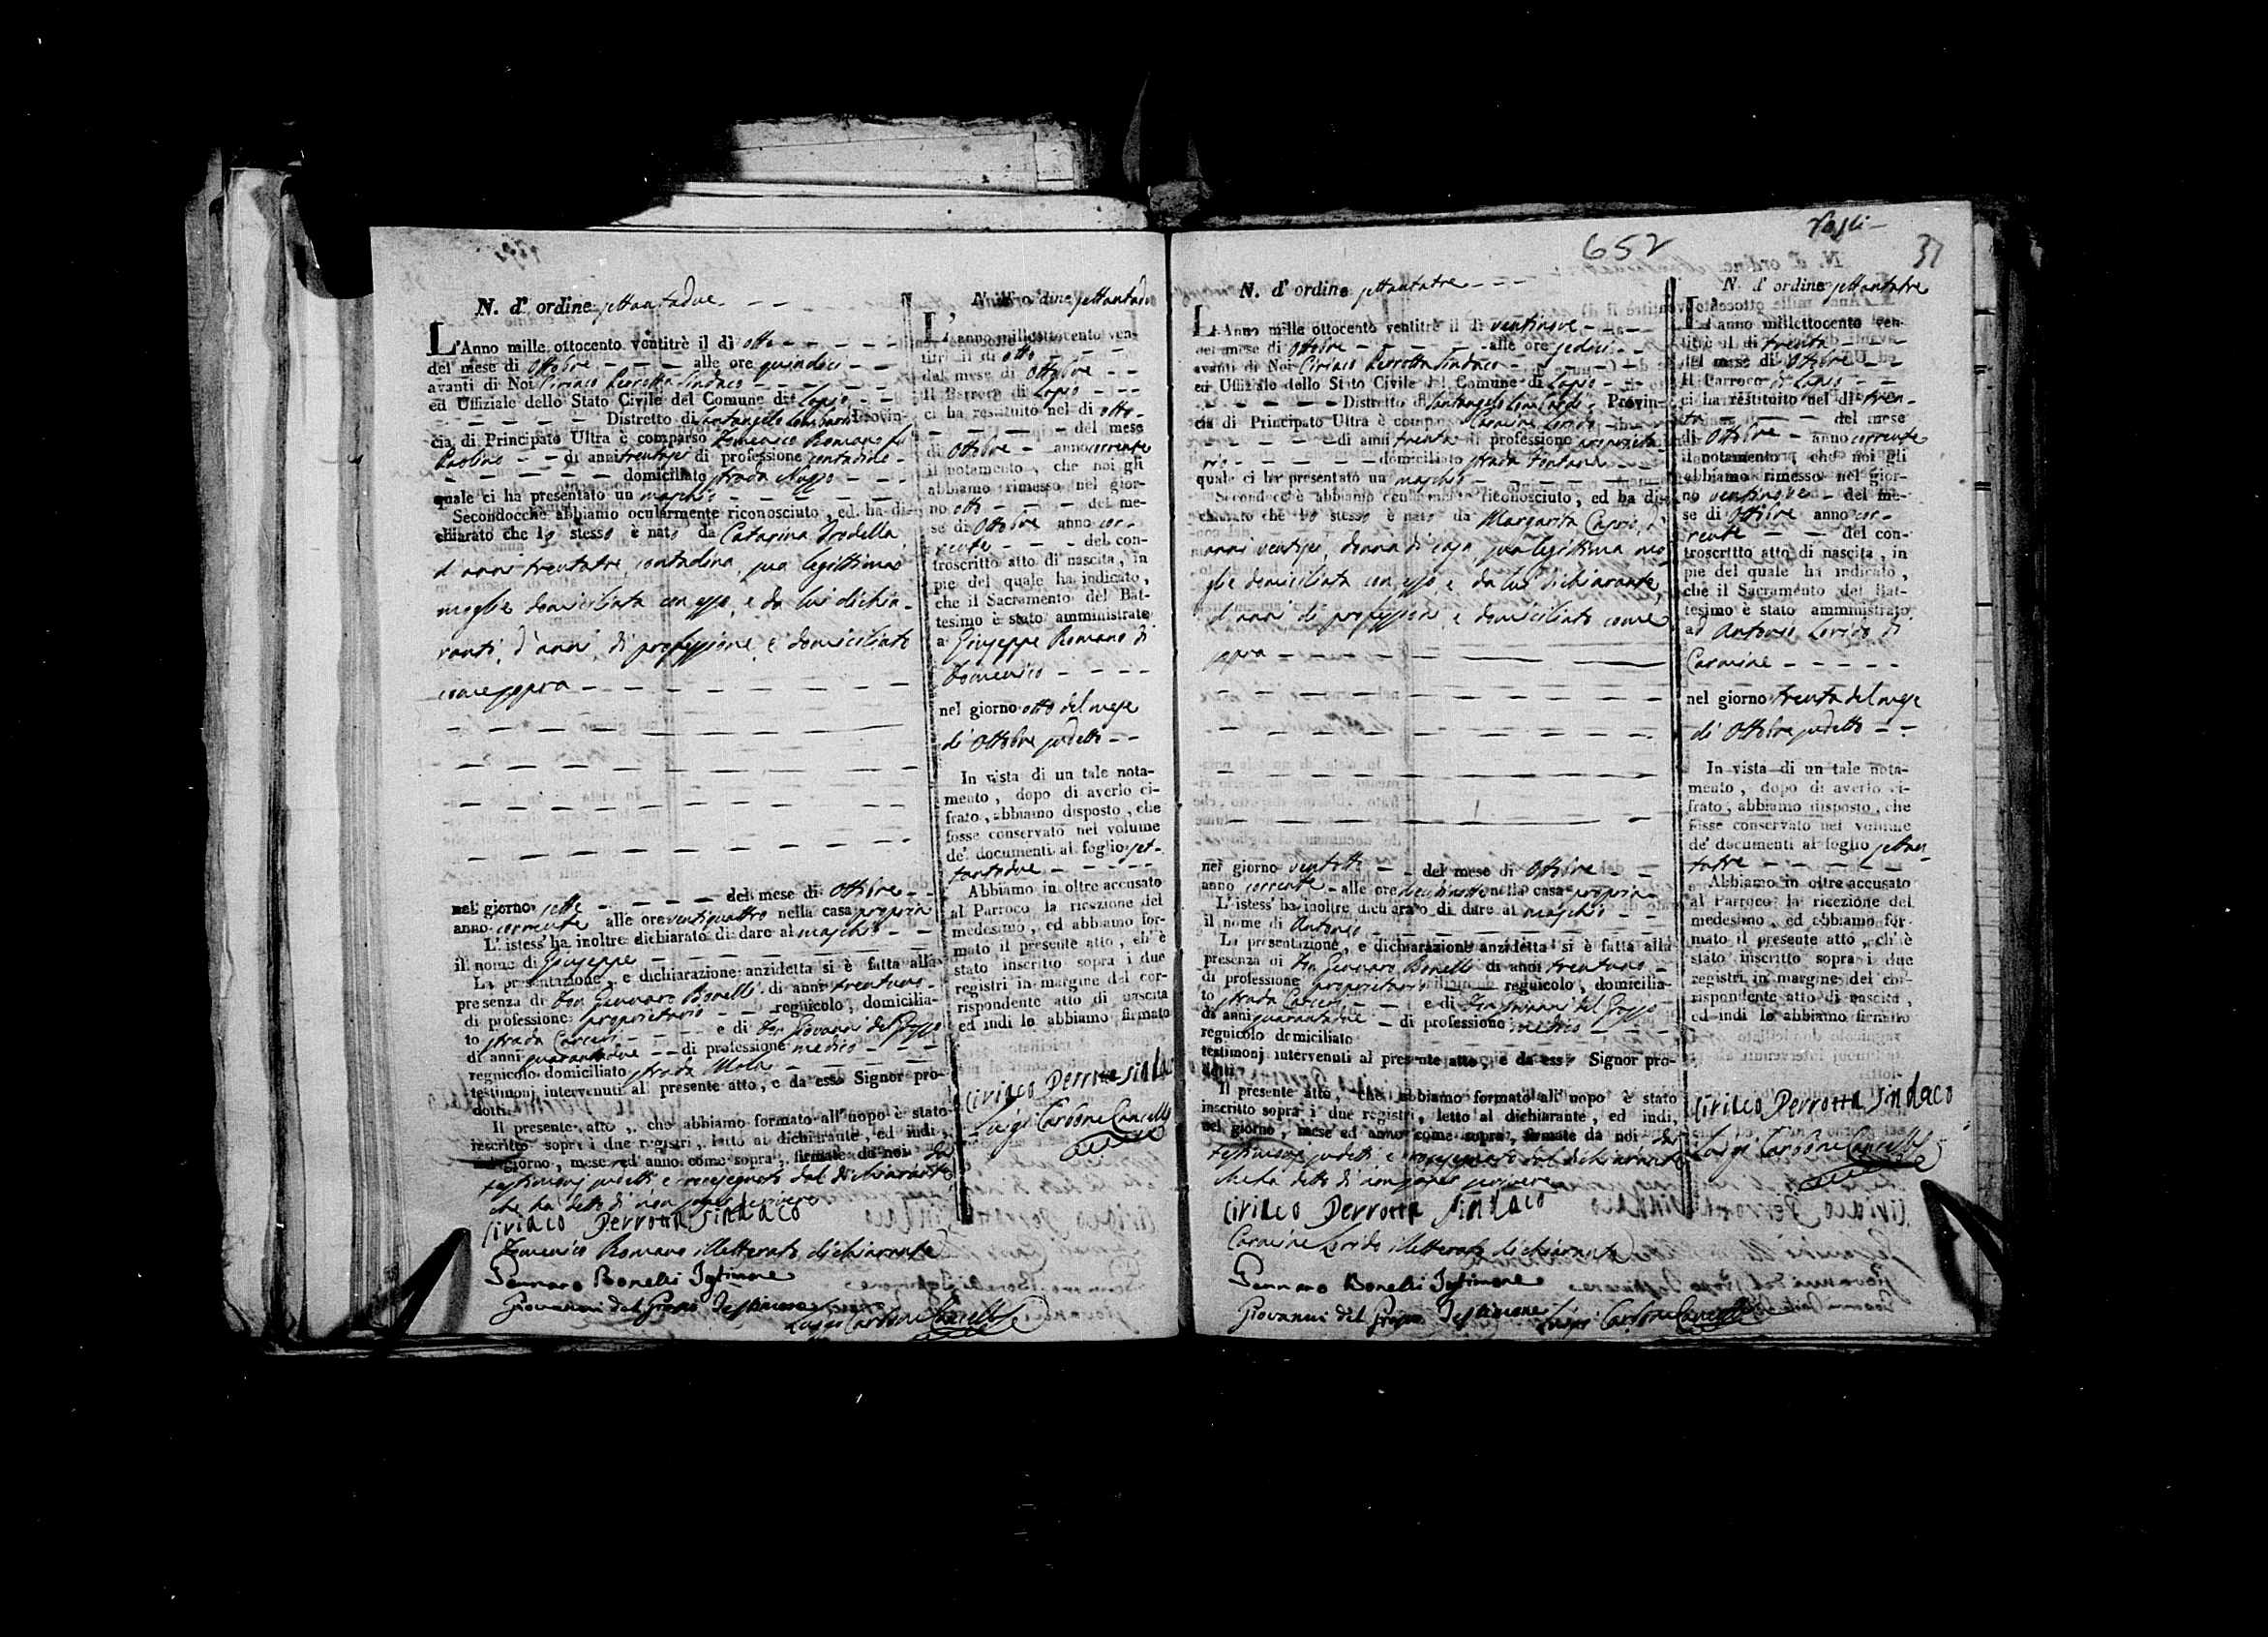 N. d' ordine settantadue
L'Anno mille ottocento ventitrè il dì otto
del mese di Ottobre alle ore quindici
avanti di Noi Ciriaco Perrotta Sindaco
ed Uffiziale dello Stato Civile del Comune di Lapio
Distretto di Santangelo Lombardi Provin-
cia di Principato Ultra è comparso Domenico Romano fu
Paolino di anni trentasei di professione contadino
domiciliato strada
quale ci ha presentato un maschio
Secondocchè abbiamo ocularmente riconosciuto, ed ha di-
chiarato che lo stesso è nato da Catarina
d'anni trentatre contadina, sua legittima
moglie domiciliata con esso, e da lui dichia-
ranti, d'anni, di professione, e domiciliato
come sopra
nel giorno sette del mese di Ottobre
anno corrente alle ore ventiquattro nella casa propria
L'istess' ha inoltre dichiarato di dare al maschio
il nome di Giuseppe
La presentazione, e dichiarazione anzidetta si è fatta alla
presenza di Don Gennaro Bonelli di anni trentuno
di professione proprietario regnicolo, domicilia-
to strada Carceri e di Don Giovanni del Grosso
di anni quarantadue di professione medico
regnicolo domiciliato strada Mola
testimonj intervenuti al presente atto, e da esso Signor pro-
dotti.
Il presente atto, che abbiamo formato all' uopo è stato
inscritto sopra i due registri, letto al dichiarante, ed indi,
nel giorno, mese ed anno come sopra, firmato da noi dai
testimonj sudetti e crocesegnato dal dichiarante
che ha detto di non saper scrivere
Ciriaco Perrotta Sindaco
Domenico Romano illetterato dichiarante
Gennaro Bonelli Testimone
Giovanni del Grosso Testimone
Luigi Carbone Cancell
N. d' ordine settantadue
L'anno millettocento ven-
titrè il dì otto
del mese di Ottobre
Il Parroco di Lapio
ci ha restituito nel dì otto
del mese
di Ottobre anno corrente
il notamento, che noi gli
abbiamo rimesso nel gior-
no otto del me-
se di Ottobre anno cor-
rente del con-
troscritto atto di nascita, in
pie del quale ha indicato,
che il Sacramento del Bat-
tesimo è stato amministrato
a Giuseppe Romano di
Domenico
nel giorno otto del mese
di Ottobre sudetto
In vista di un tale nota-
mento, dopo di averlo ci-
frato, abbiamo disposto, che
fosse conservato nel volume
de' documenti al foglio set-
tantadue
Abbiamo in oltre accusato
al Parroco la ricezione del
medesimo, ed abbiamo for-
mato il presente atto, ch' è
stato inscritto sopra i due
registri in margine del cor-
rispondente atto di nascita
ed indi lo abbiamo firmato
Ciriaco Perrotta Sindaco
Luigi Carbone Cancell
652
37
N. d' ordine settantatre
L'Anno mille ottocento ventitrè il dì ventinove
del mese di Ottobre alle ore sedici
avanti di Noi Ciriaco Perrotta Sindaco
ed Uffiziale dello Stato Civile del Comune di Lapio
Distretto di Santangelo Lombardi Provin-
cia di Principato Ultra è comparso Carmine Lorido
di anni trenta di professione proprieta-
rio domiciliato strada Fontana
quale ci ha presentato un maschio
Secondocchè abbiamo ocularmente riconosciuto, ed ha di-
chiarato che lo stesso è nato da Margarita Caprio, d'
anni ventisei, donna di casa sua legittima mo-
glie domiciliata con esso e da lui dichiarante,
d'anni di professione e domiciliato come
sopra
nel giorno ventotto del mese di Ottobre
anno corrente alle ore diecinnove nella casa propria
L'istess' ha inoltre dichiarato di dare al maschio
il nome di Antonio
La presentazione, e dichiarazione anzidetta si è fatta alla
presenza di Don Gennaro Bonelli di anni trentuno
di professione proprietario regnicolo, domicilia-
to strada Carceri e di Don Giovanni del Grosso
di anni quarantadue di professione medico
regnicolo domiciliato
testimonj intervenuti al presente atto, e da esso Signor pro-
dotti.
Il presente atto, che abbiamo formato all' uopo è stato
inscritto sopra i due registri, letto al dichiarante, ed indi,
nel giorno, mese ed anno come sopra, firmato da noi dai
testimonj sudetti e crocesegnato dal dichiarante
che ha detto di non saper scrivere
Ciriaco Perrotta Sindaco
Carmine Lorido illetterato dichiarante
Gennaro Bonelli Testimone
Giovanni del Grosso Testimone
Luigi Carbone Cancell
N. d' ordine settantatre
L'anno millettocento ven-
titrè il dì trenta
del mese di Ottobre
Il Parroco di Lapio
ci ha restituito nel dì tren-
ta del mese
di Ottobre anno corrente
il notamento, che noi gli
abbiamo rimesso nel gior-
no ventinove del me-
se di Ottobre anno cor-
rente del con-
troscritto atto di nascita, in
pie del quale ha indicato,
che il Sacramento del Bat-
tesimo è stato amministrato
ad Antonio Lorido di
Carmine
nel giorno trenta del mese
di Ottobre sudetto
In vista di un tale nota-
mento, dopo di averlo ci-
frato, abbiamo disposto, che
fosse conservato nel volume
de' documenti al foglio settan-
tatre
Abbiamo in oltre accusato
al Parroco la ricezione del
medesimo, ed abbiamo for-
mato il presente atto, ch' è
stato inscritto sopra i due
registri in margine del cor-
rispondente atto di nascita,
ed indi lo abbiamo firmato
Ciriaco Perrotta Sindaco
Luigi Carbone Cancell